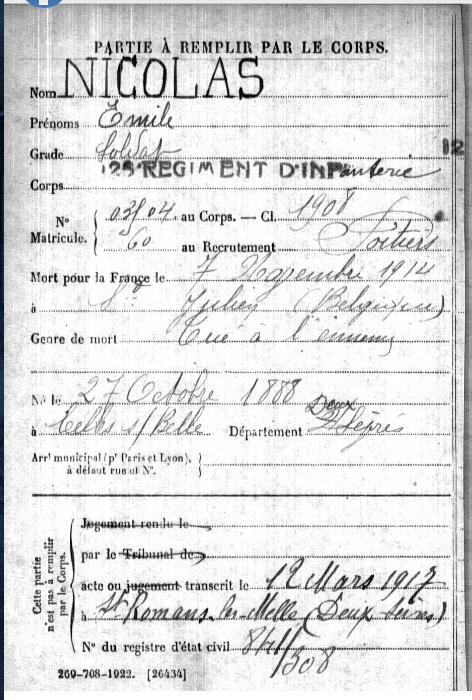 PARTIE À REMPLIR PAR LE CORPS.
Nom NICOLAS
Prénoms Emile
Grade Soldat
12
Corps 125 REGIMENT D'INFanterie
N° Matricule. { 03104 au Corps. — Cl. 1908
60 au Recrutement Poitiers
Mort pour la France le 7 Novembre 1914
à St Julien (Belgique)
Genre de mort Tué à l'ennemi
Né le 27 Octobre 1888
à Celles s/Belle Département Deux Sèvres
Arrt municipal (pr Paris et Lyon), à défaut rue et N°.
Cette partie n'est pas à remplir par le Corps.
Jugement rendu le
par le Tribunal de
acte ou jugement transcrit le 12 Mars 1917
à St Romans les Melle (Deux Sèvres)
N° du registre d'état civil 841/308
269-708-1922. [26434]